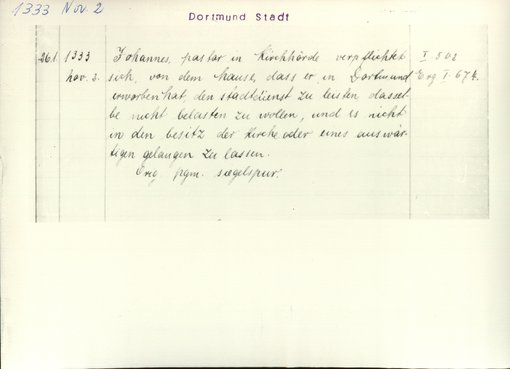 1333 Nov. 2
Dortmund Stadt
261. 1333 Johannes, pastor in Kirchhörde verpflichtet I 502
nov. 2. sich, von dem hause, dass er in Dortmund Erg I. 674.
erworben hat, den stadtdienst zu leisten dassel-
be nicht belasten zu wollen, und es nicht
in den besitz der kirche oder eines auswär-
tigen gelangen zu lassen.
Orig. pgm. siegelspur.